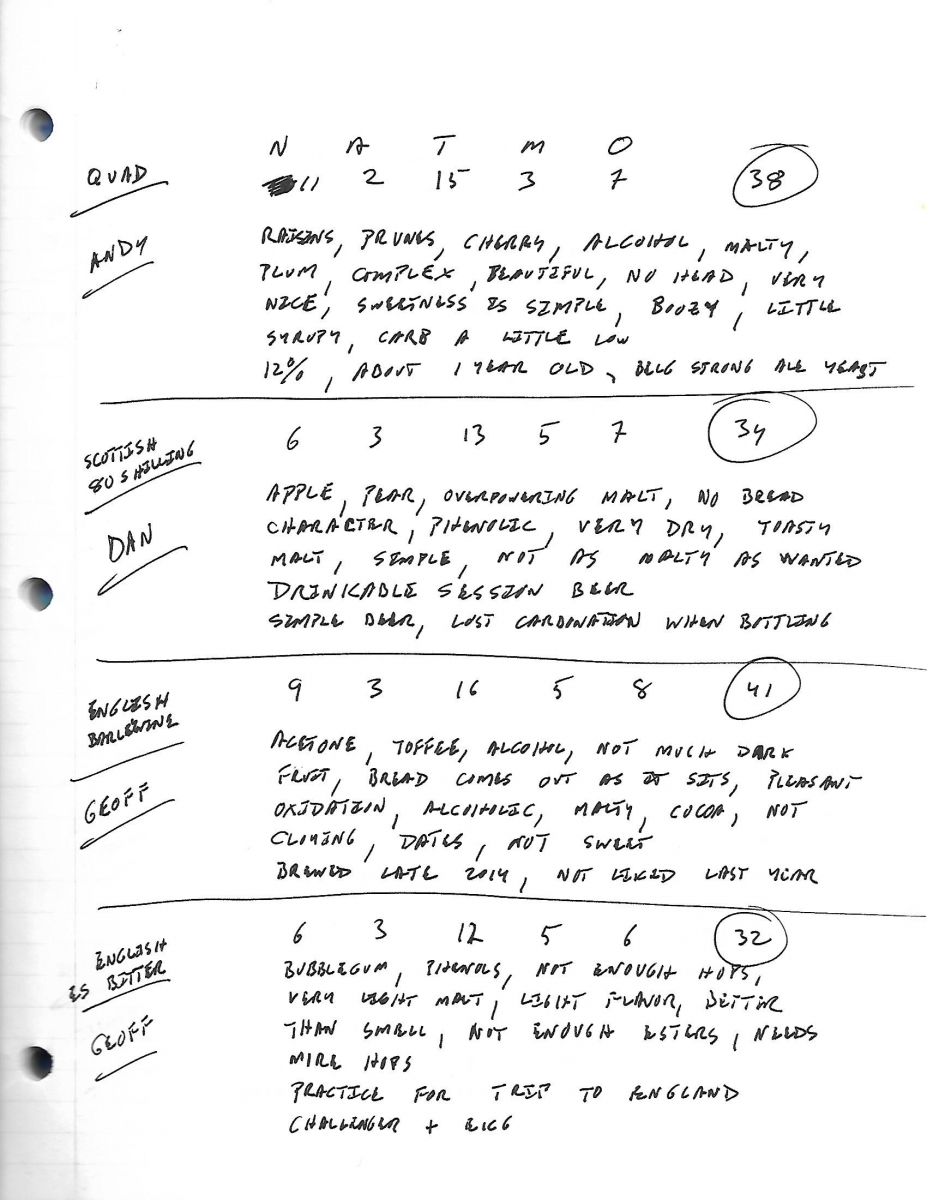 N A T M O
QUAD 11 2 15 3 7 38
ANDY
RAISINS, PRUNES, CHERRY, ALCOHOL, MALTY,
PLUM, COMPLEX, BEAUTIFUL, NO HEAD, VERY
NICE, SWEETNESS IS SIMPLE, BOOZY, LITTLE
SYRUPY, CARB A LITTLE LOW
12%, ABOUT 1 YEAR OLD, BELG STRONG ALE YEAST
SCOTTISH
80 SHILLING
6 3 13 5 7 34
DAN
APPLE, PEAR, OVERPOWERING MALT, NO BREAD
CHARACTER, PHENOLIC, VERY DRY, TOASTY
MALT, SIMPLE, NOT AS MALTY AS WANTED
DRINKABLE SESSION BEER
SIMPLE BEER, LOST CARBONATION WHEN BOTTLING
ENGLISH
BARLEWINE
9 3 16 5 8 41
GEOFF
ACETONE, TOFFEE, ALCOHOL, NOT MUCH DARK
FRUIT, BREAD COMES OUT AS IT SITS, PLEASANT
OXIDATION, ALCOHOLIC, MALTY, COCOA, NOT
CLOYING, DATES, NOT SWEET
BREWED LATE 2014, NOT LIKED LAST YEAR
ENGLISH
ES BITTER
6 3 12 5 6 32
GEOFF
BUBBLEGUM, PHENOLS, NOT ENOUGH HOPS,
VERY LIGHT MALT, LIGHT FLAVOR, BETTER
THAN SMELL, NOT ENOUGH ESTERS, NEEDS
MIRE HOPS
PRACTICE FOR TRIP TO ENGLAND
CHALLENGER + EKG